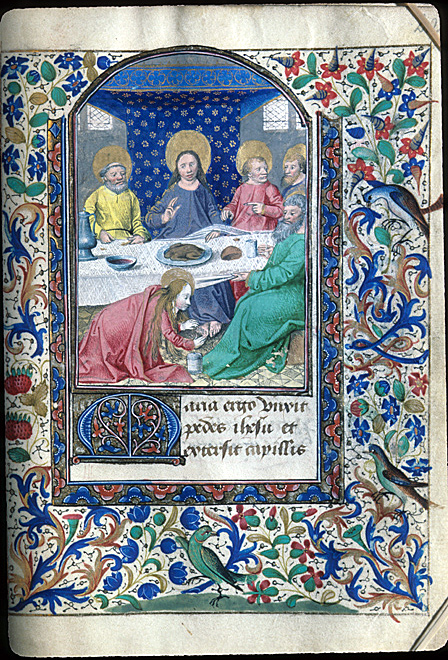 Maria ergo vnxit
pedes ihesu et
extersit capillis